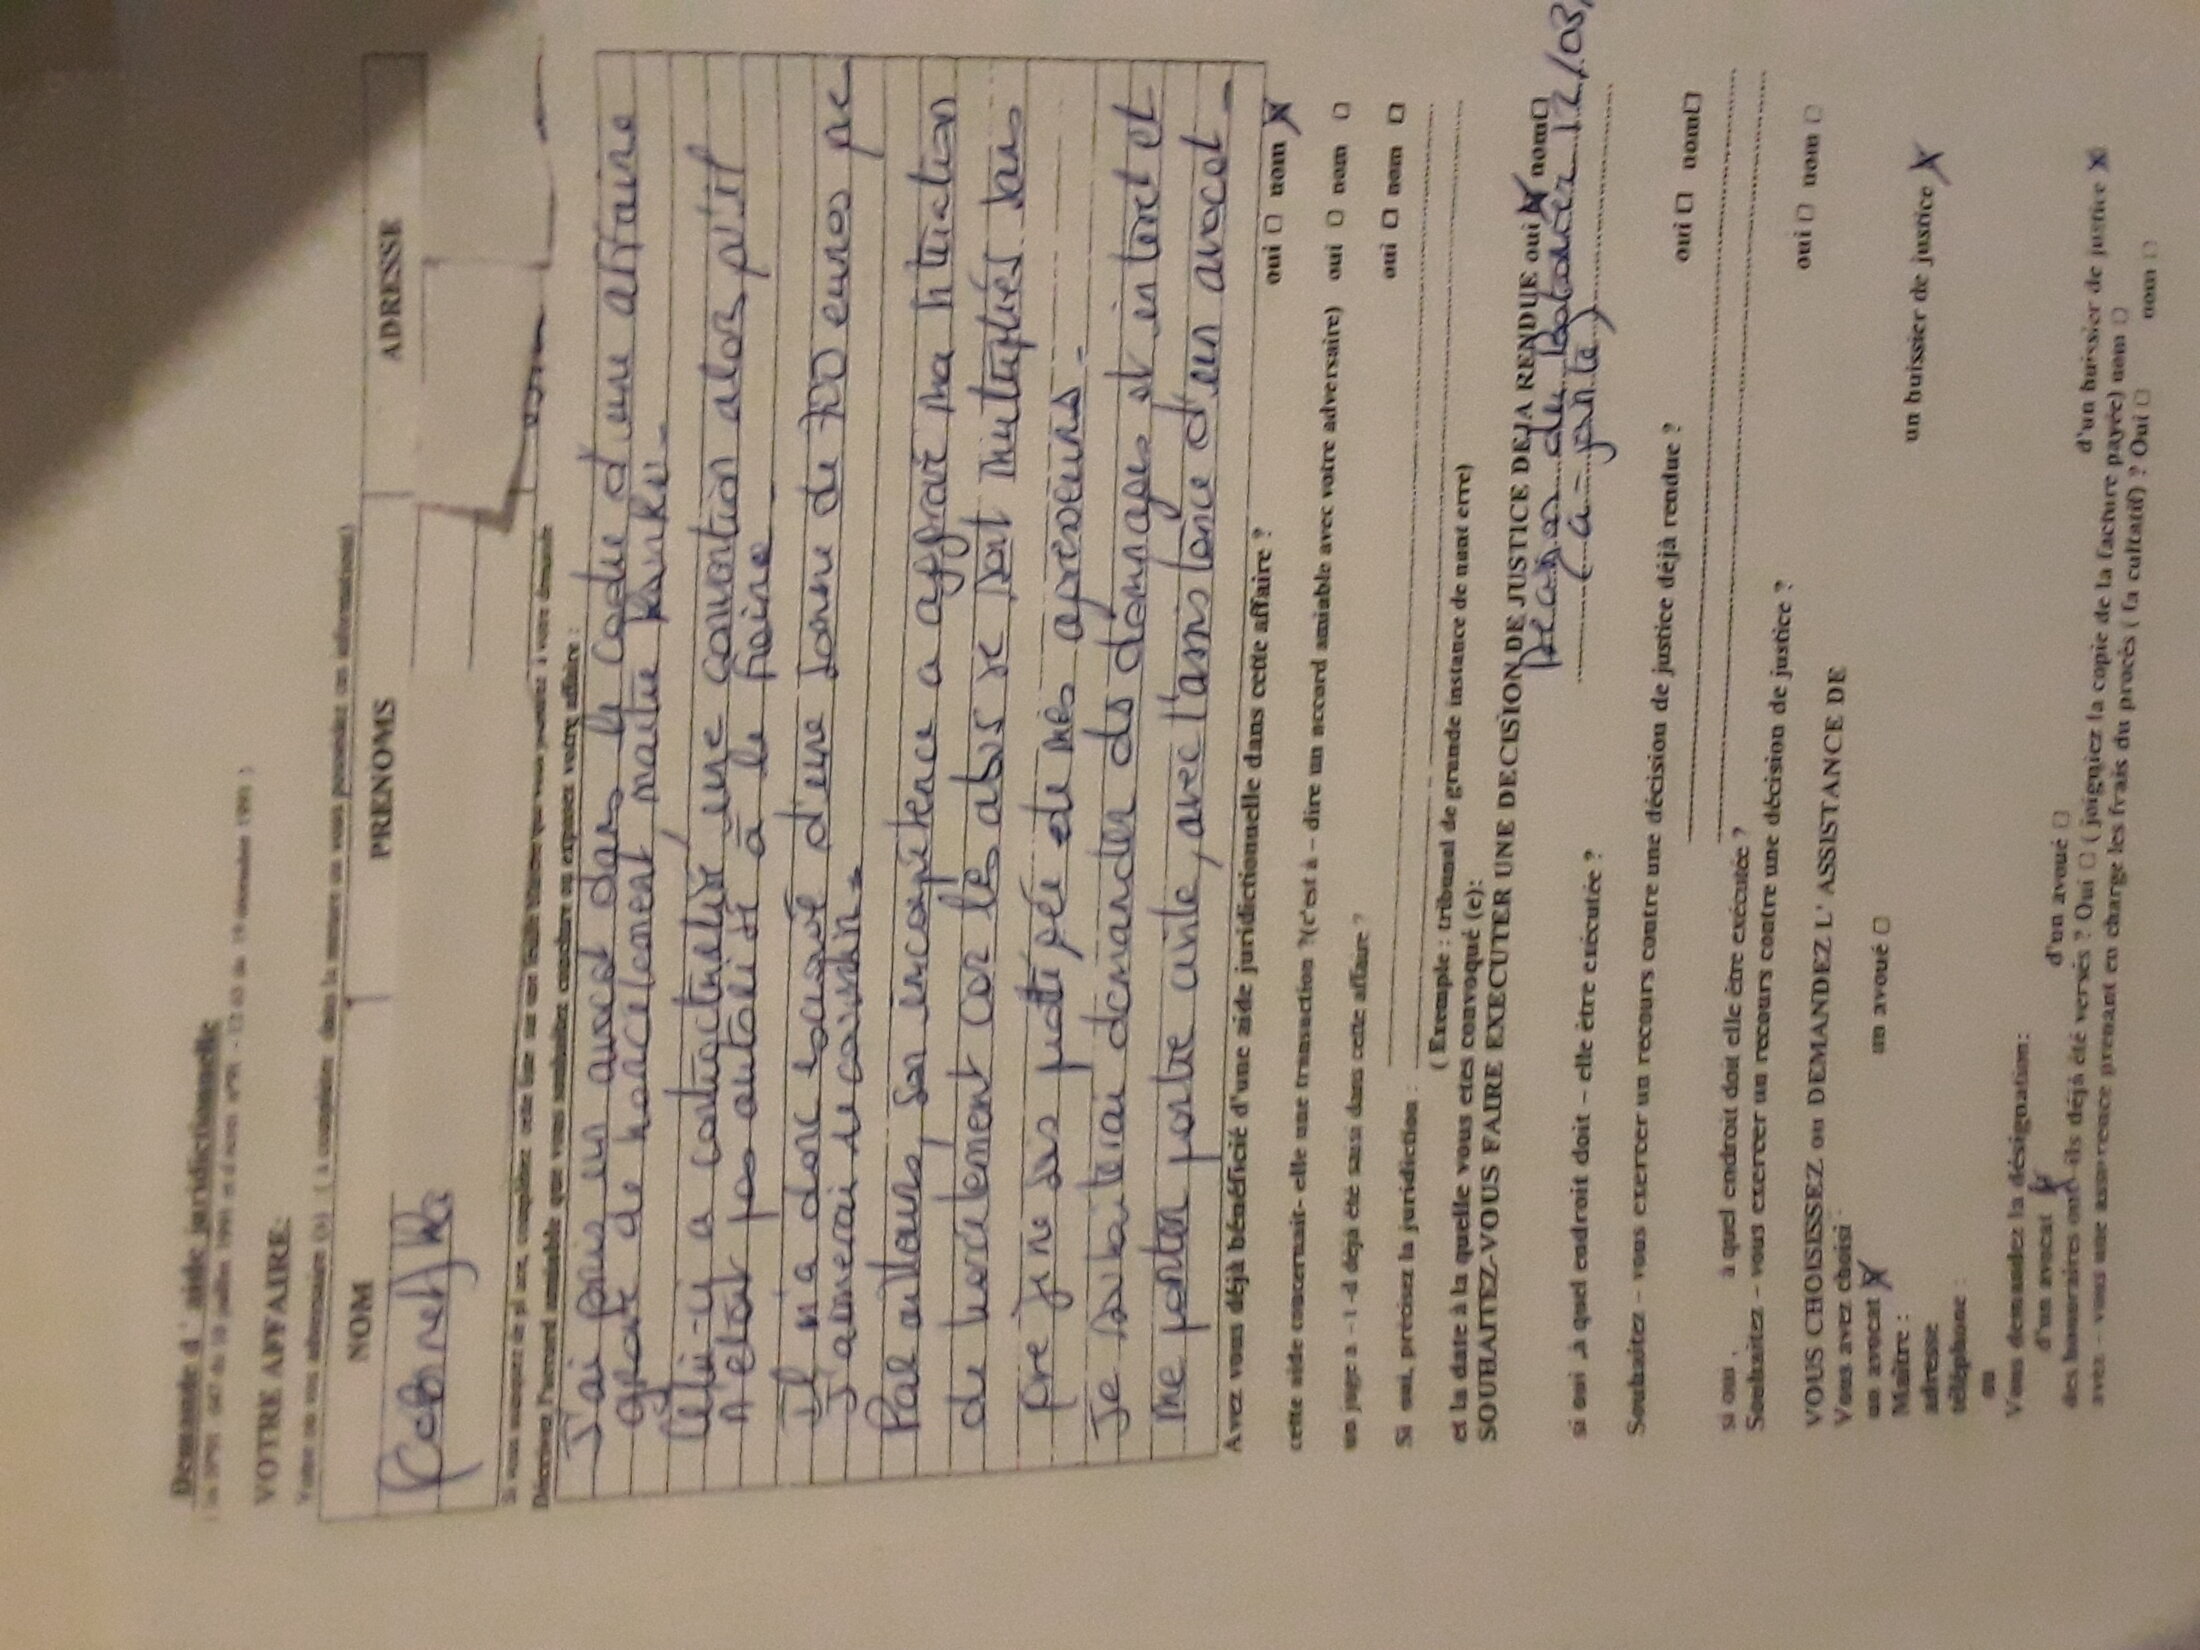 Demande d'aide juridictionnelle
VOTRE AFFAIRE:
NOM PRENOMS ADRESSE
Décrivez l'accord amiable que vous souhaitez conclure ou exposez votre affaire :
J'ai pris un avocat dans le cadre d'une affaire
de harcèlement maître
Celui-ci a contractualisé une convention alors qu'il
n'était pas autorisé à le faire.
Il m'a donc soutiré d'une somme de 700 euros que
J'aimerai
Par ailleurs, son incompétence a aggravé ma situation
de harcèlement car les abus se sont multipliés sans
que je ne sois protégée de mes agresseurs.
Je souhaiterai demander des dommages et intérêt et
me porter partie civile, avec l'assistance d'un avocat.
Avez vous déjà bénéficié d'une aide juridictionnelle dans cette affaire ? oui □ nom ☒
cette aide concernait- elle une transaction ?(c'est à – dire un accord amiable avec votre adversaire) oui □ nom □
un juge a – t -il déjà été saisi dans cette affaire ? oui □ nom □
Si oui, précisez la juridiction :
( Exemple : tribunal de grande instance de nant erre)
et la date à la quelle vous etes convoqué (e):
SOUHAITEZ-VOUS FAIRE EXECUTER UNE DECISION DE JUSTICE DEJA RENDUE oui ☒ nom□
du Batonnier 12/03/
si oui ,à quel endroit doit – elle être exécutée ? (ci-jointe)
Souhaitez – vous exercer un recours contre une décision de justice déjà rendue ? oui □ nom□
si oui , à quel endroit doit elle être exécutée ?
Souhaitez – vous exercer un recours contre une décision de justice ? oui □ nom □
VOUS CHOISISSEZ ou DEMANDEZ L' ASSISTANCE DE
Vous avez choisi
un avocat ☒ un avoué □ un huissier de justice ☒
Maître :
adresse
téléphone :
ou
Vous demandez la désignation:
d'un avocat ☒ d'un avoué □ d'un huissier de justice ☒
des honoraires ont-ils déjà été versés ? Oui □ ( joigniez la copie de la facture payée) nom □
avez – vous une assurence prenant en charge les frais du procès ( fa cultatif) ? Oui □ nom □